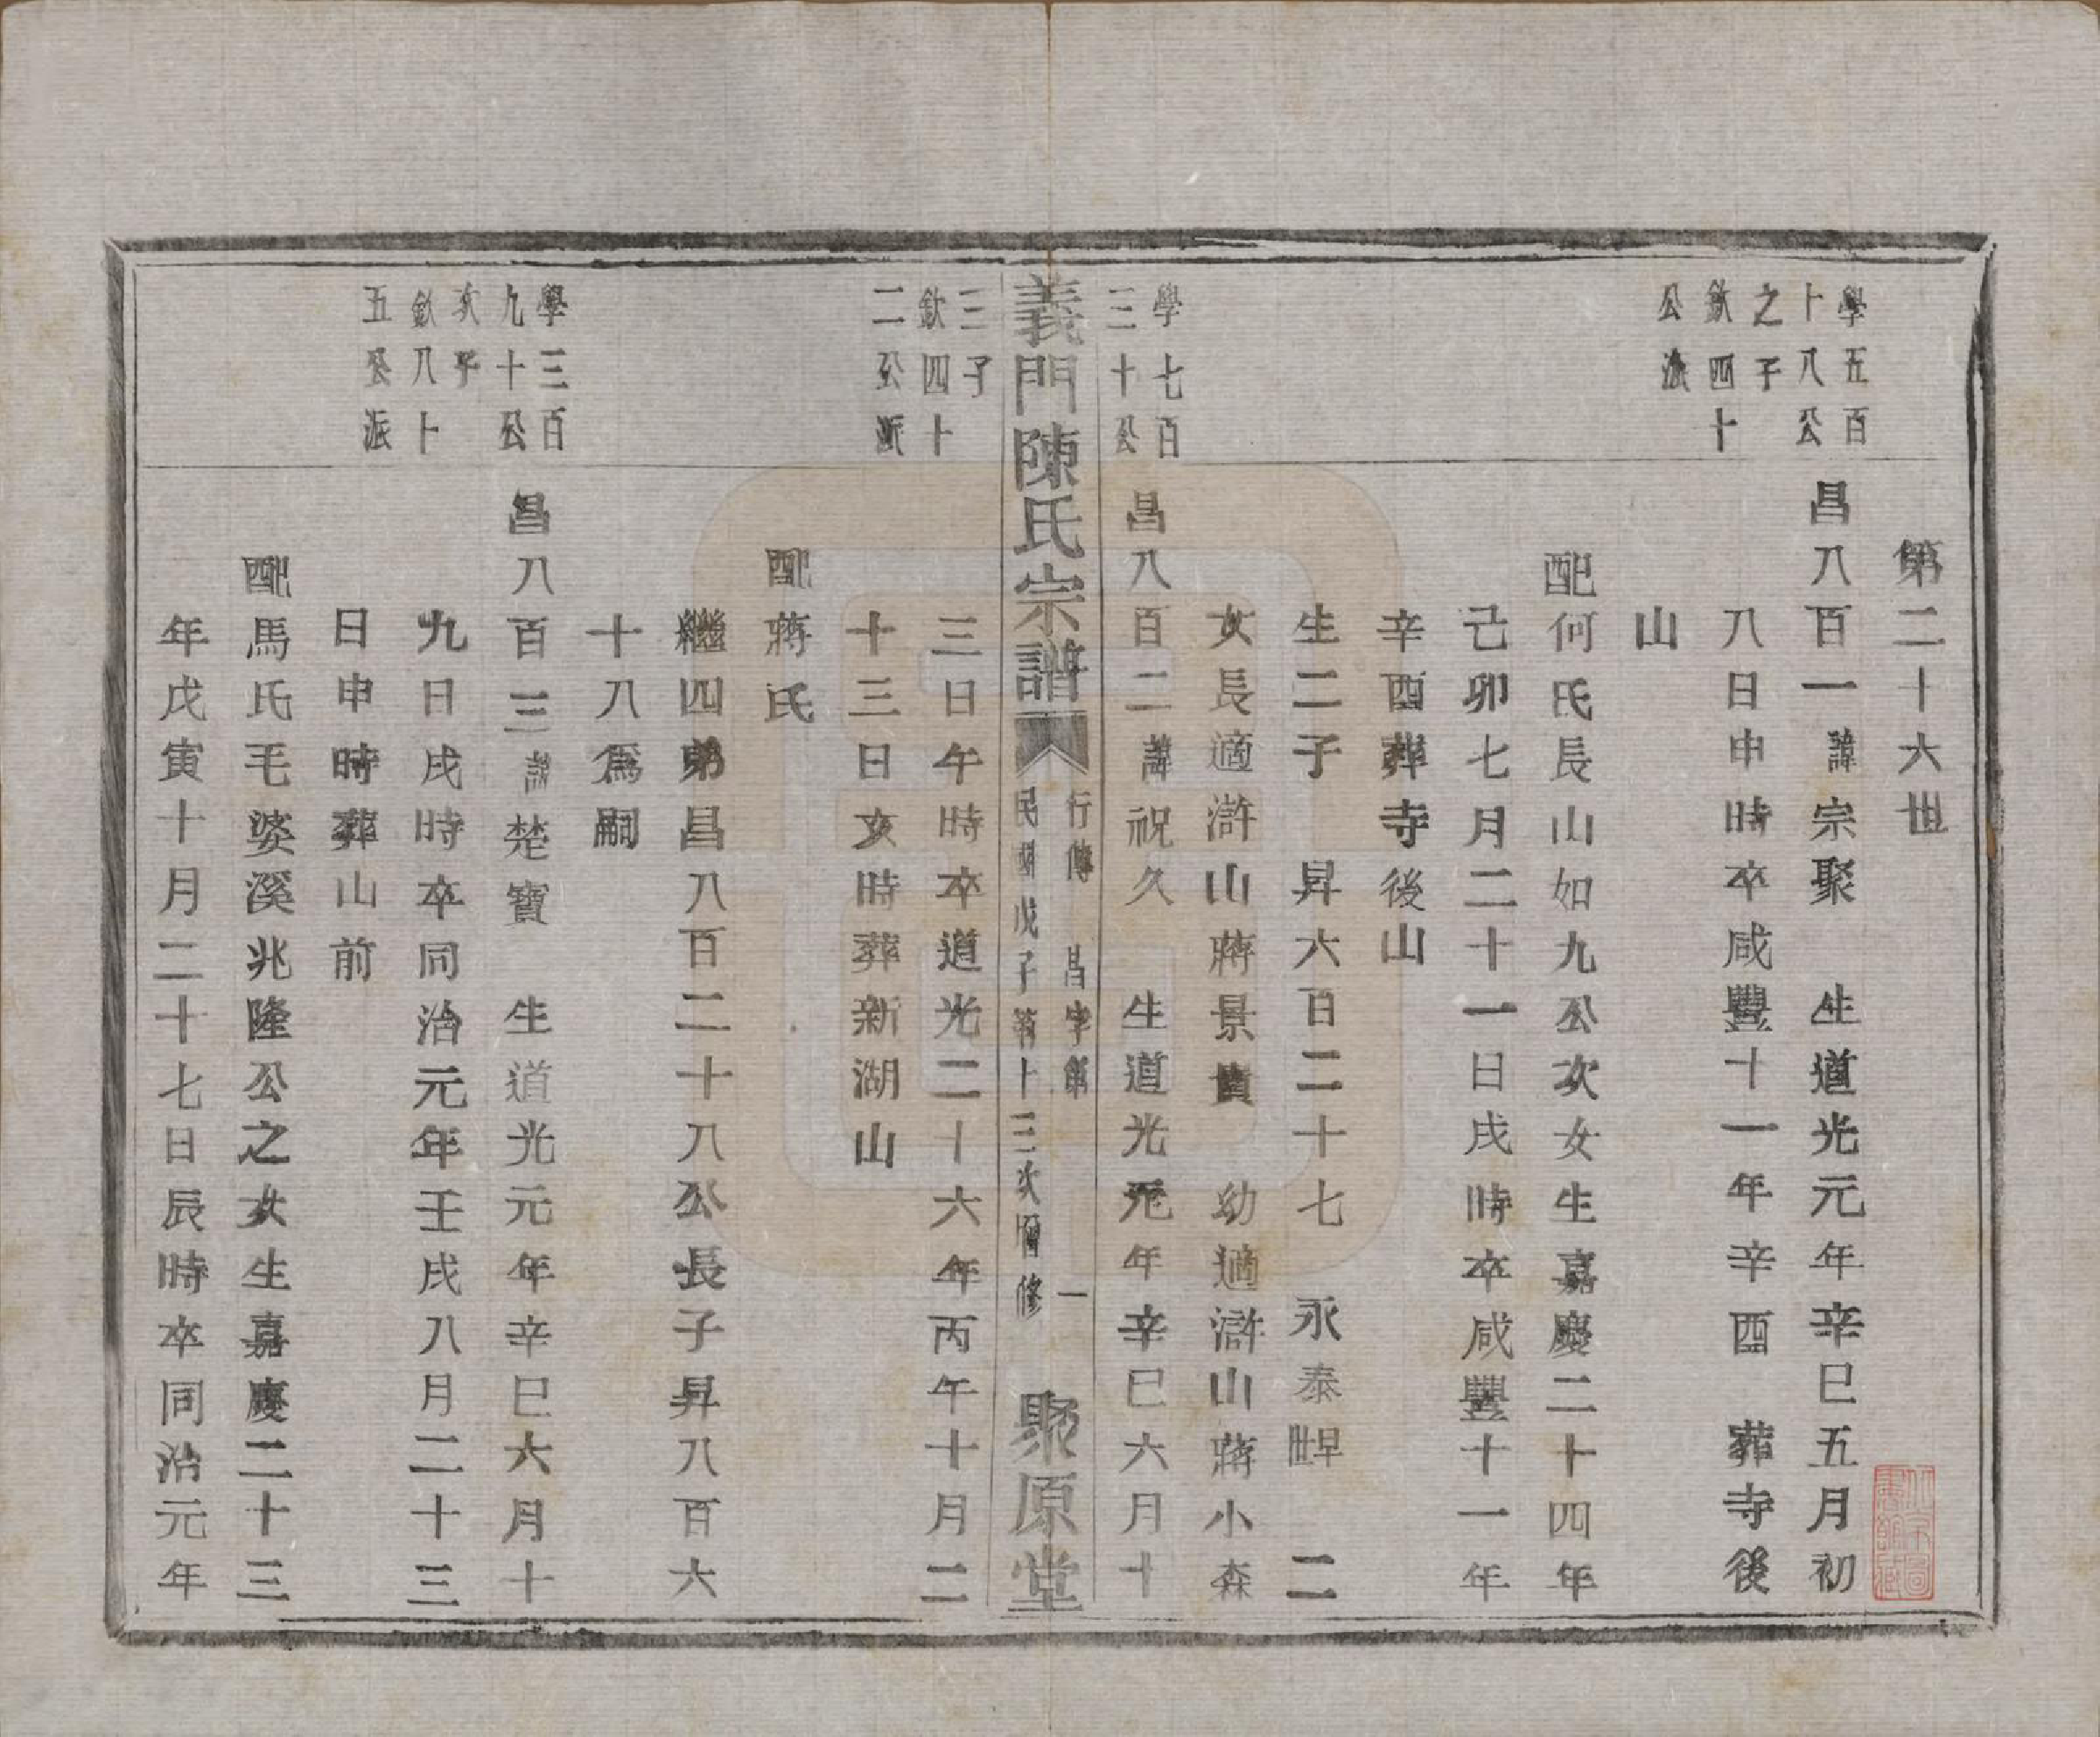 第二十六世
學五百
十八公
之子
欽四十
公派
昌八百一諱宗聚 生道光元年辛巳五月初
八日申時卒咸豐十一年辛酉 葬寺後
山
配何氏長山如九公次女生嘉慶二十四年
己卯七月二十一日戌時卒咸豐十一年
辛酉葬寺後山
生二子 昇六百二十七 永泰 二
女長適滸山蔣景 幼適滸山蔣小森
學七百
三十公
昌八百二諱祝久 生道光元年辛巳六月十
義門陳氏宗譜
行傳 昌字第 一
民國戊子第十三次 修
聚原堂
三子
欽四十
二公派
三日午時卒道光二十六年丙午十月二
十三日亥時葬新湖山
配蔣氏
繼四弟昌八百二十八公長子昇八百六
十八爲嗣
學三百
九十公
次子
欽八十
五公派
昌八百三諱楚寶 生道光元年辛巳六月十
九日戌時卒同治元年壬戌八月二十三
日申時葬山前
配馬氏毛婆溪兆隆公之女生嘉慶二十三
年戊寅十月二十七日辰時卒同治元年